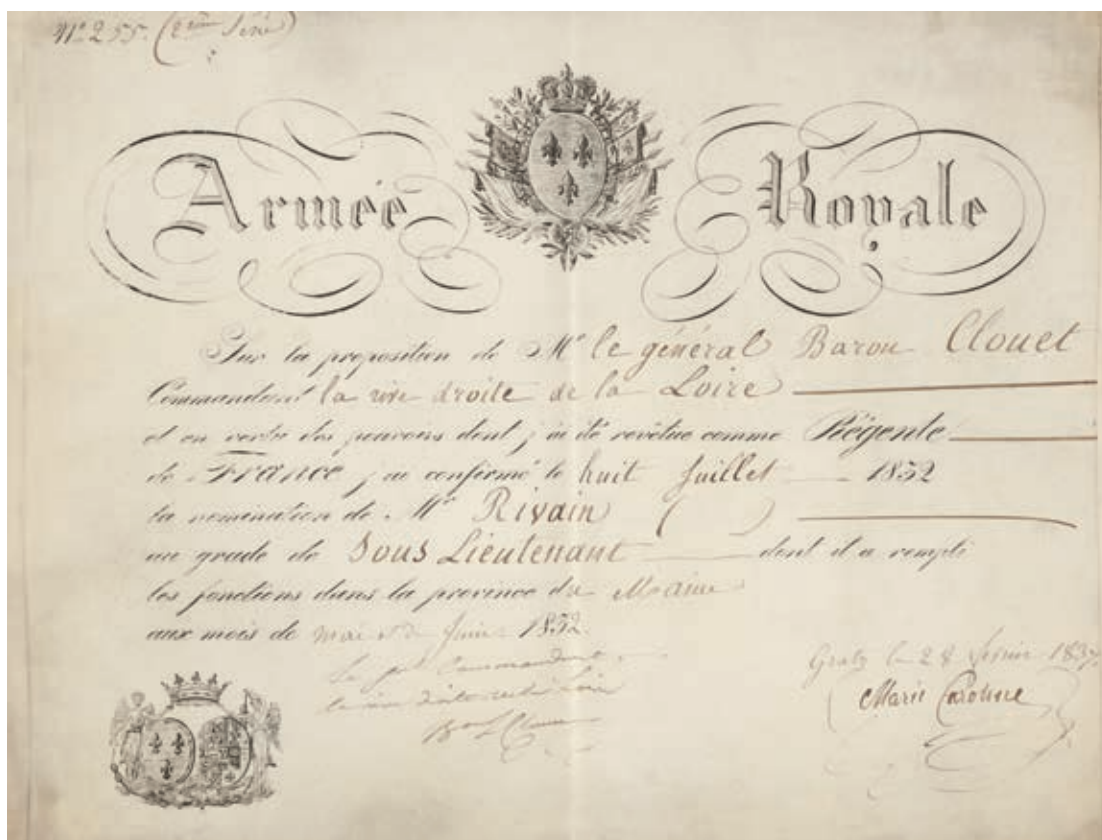 N° 255. (2ème Série)
Armée Royale
Sur la proposition de Mr le général Baron Clouet
Commandant la rive droite de la Loire
et en vertu des pouvoirs dont j'ai été revêtue comme Régente
de France j'ai confirmé le huit Juillet 1832
la nomination de Mr Rivain ( )
au grade de Sous Lieutenant dont il a rempli
les fonctions dans la province du Maine
aux mois de mai et de Juin 1832.
Le gal Commandant
la rive droite de la Loire
Bon Clouet
Gratz le 28 février 1837
Marie Caroline